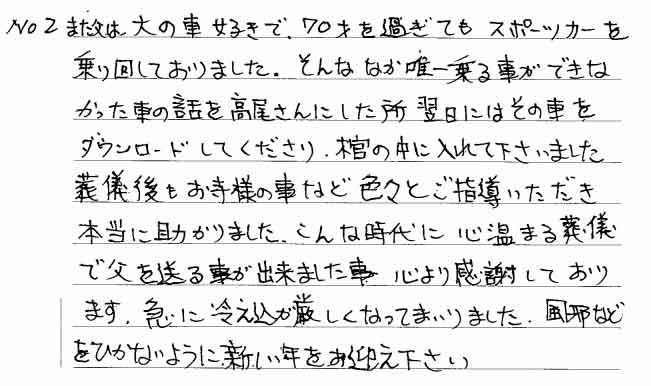 No2 また父は大の車好きで、70才を過ぎてもスポーツカーを
乗り回しておりました。そんななか唯一乗る事ができな
かった車の話を高尾さんにした所翌日にはその車を
ダウンロードしてくださり、棺の中に入れて下さいました
葬儀後もお寺様の事など色々とご指導いただき
本当に助かりました、こんな時代に心温まる葬儀
で父を送る事が出来ました事 心より感謝しており
ます、急に冷え込が厳しくなってまいりました、風邪など
をひかないように新しい年をお迎え下さい